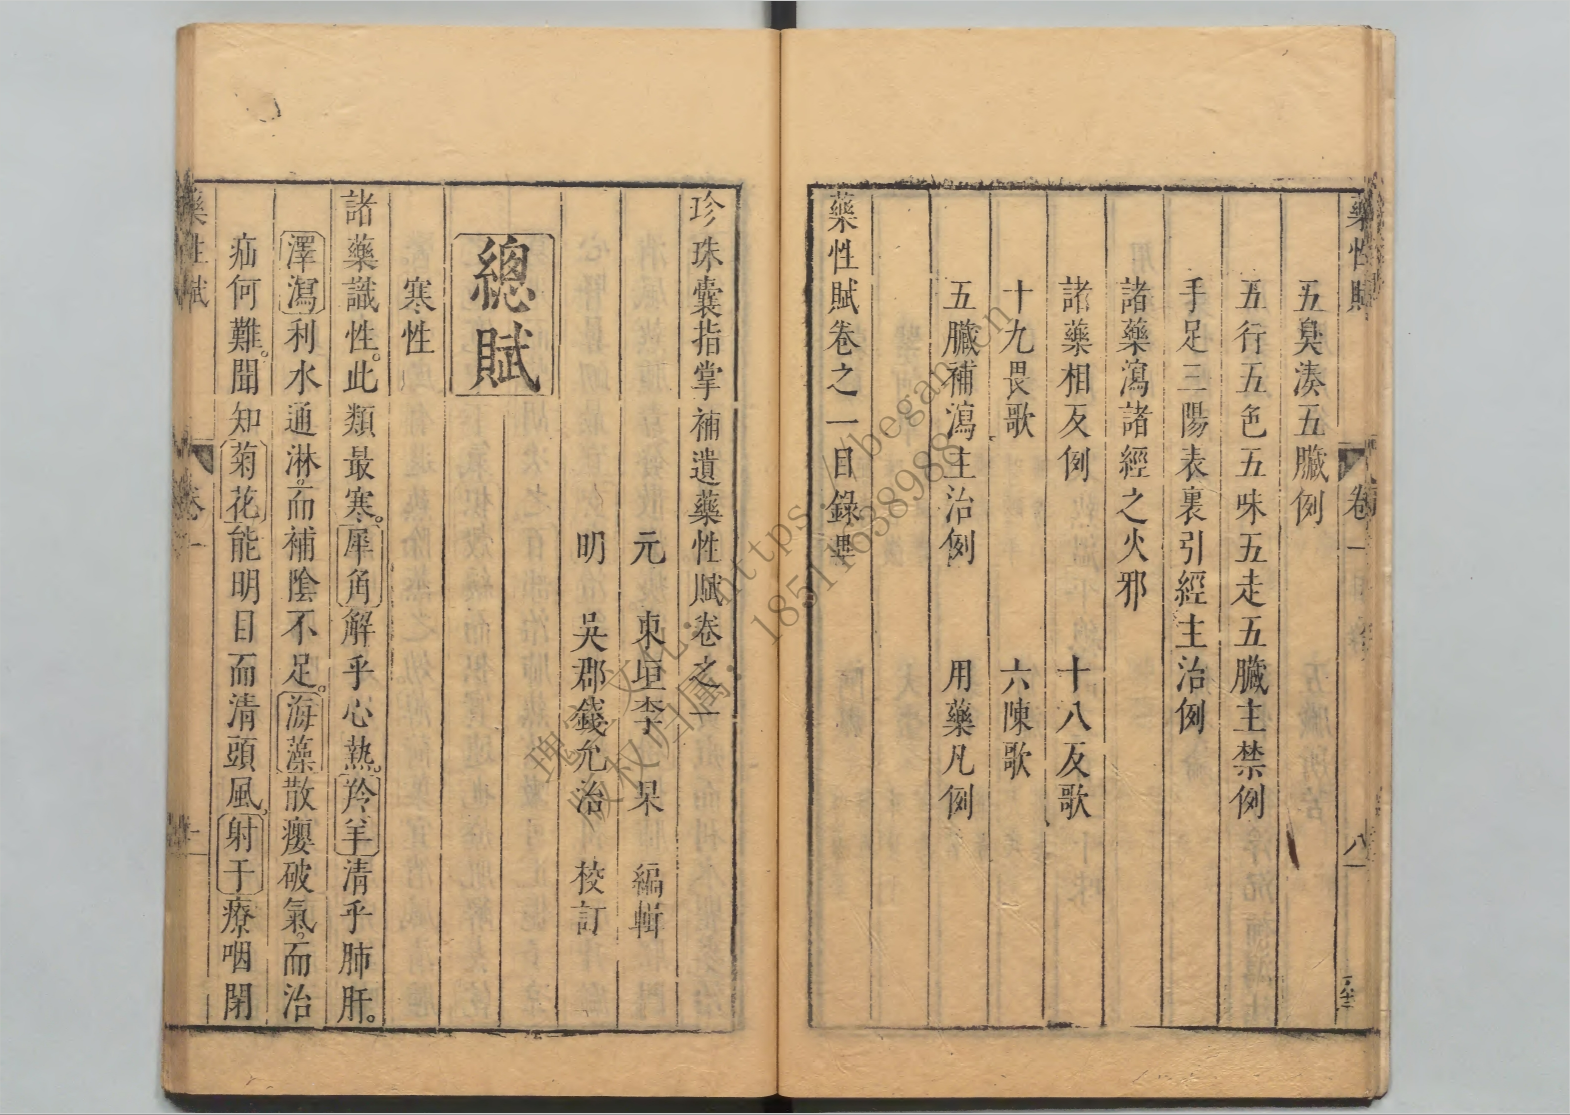 藥性賦 卷一 八
五臭湊五臟例
五行五色五味五走五臟主禁例
手足三陽表裏引經主治例
諸藥瀉諸經之火邪
諸藥相反例 十八反歌
十九畏歌 六陳歌
五臟補瀉主治例 用藥凡例
藥性賦卷之一目錄畢
珍珠囊指掌補遺藥性賦卷之一
元 東垣李 杲 編輯
明 吳郡錢允治 校訂
總賦
寒性
諸藥識性。此類最寒。犀角解乎心熱。羚羊清乎肺肝。
澤瀉利水通淋。而補陰不足。海藻散癭破氣。而治
疝何難。聞知菊花能明目而清頭風。射干療咽閉
藥性賦 卷一 一
https://began.cn
18511638988